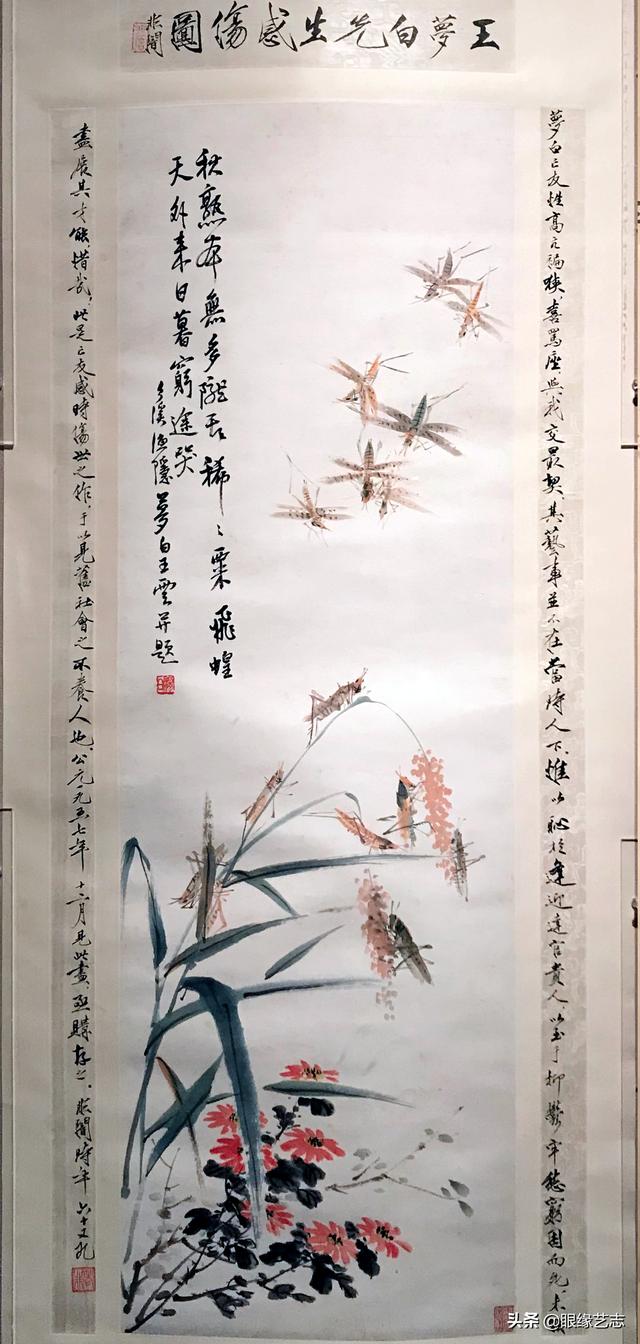 王夢白先生感傷圖
非闇
夢白亡友性高亢褊狹，喜罵座，與我交最契，其藝事並不在當時人下，惟以恥於逢迎達官貴人，以至于抑鬱牢愁窮困而死，未
秋熟本無多隴稀〻粟飛蝗
天外來日暮窮途哭
彡溪漁隱夢白王雲并題
盡展其才能惜哉，此是亡友感時傷世之作，于以見舊社會之不養人也，公元一九五七年十二月見此畫，亟購存之，非闇時年六十又九
头条 @眼缘艺志